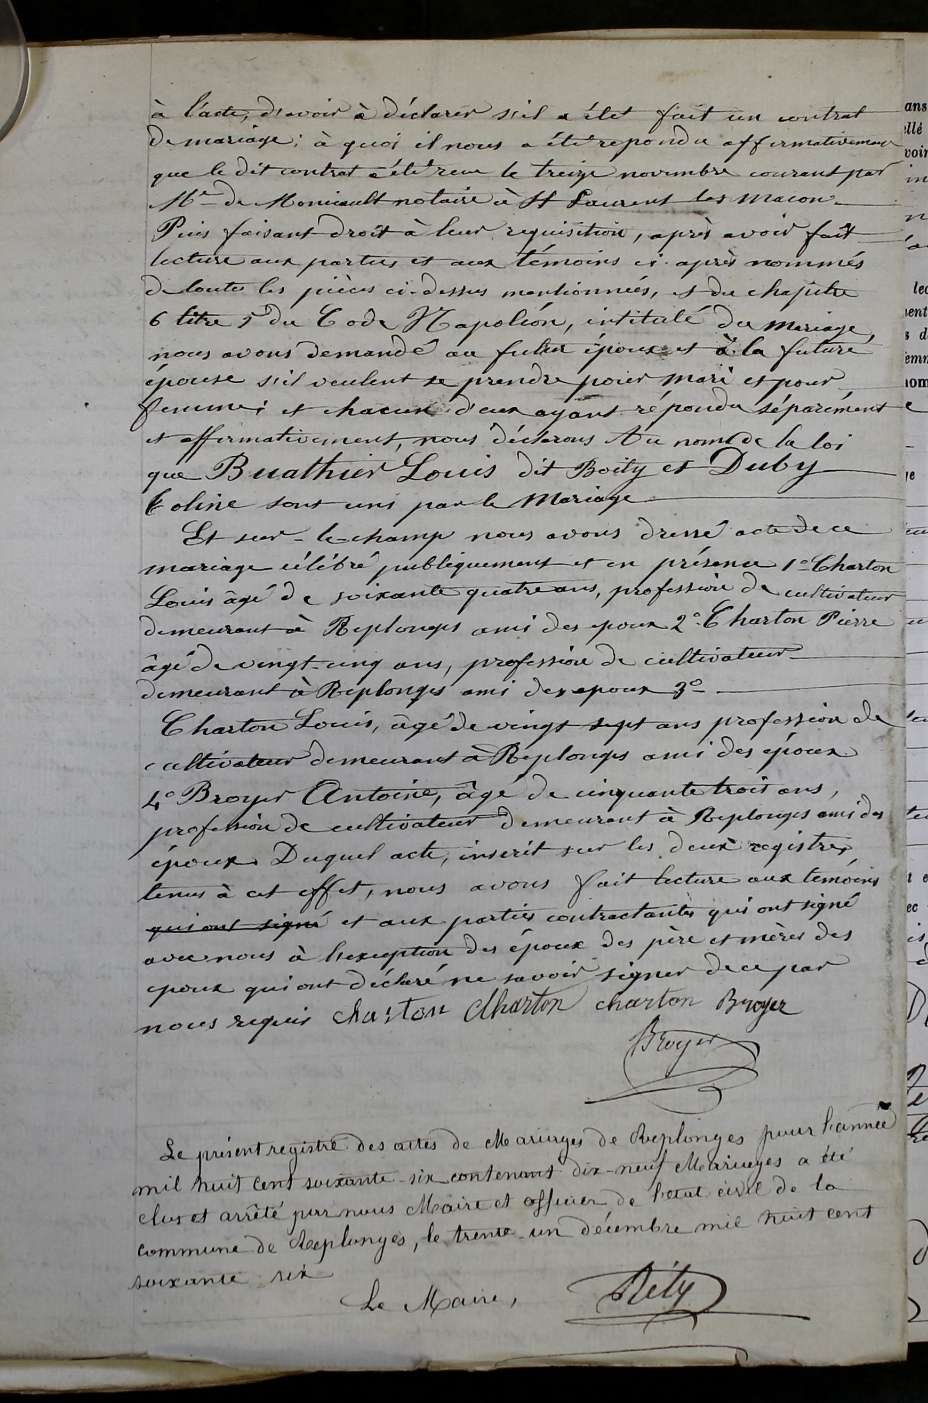 à l'acte, d'avoir à déclarer s'il a étét fait un contrat
de mariage; à quoi il nous a été repondu affirmativement
que le dit contrat a été reçu le treize novembre courant par
Me de Monicault notaire à St Laurent les Macon
Puis faisant droit à leur requisition, après avoir fait
lecture aux parties et aux témoins ci-après nommés
de toutes les pièces ci-dessus mentionnées, et du chapitre
6 titre 5 du Code Napoléon, intitulé du mariage,
nous avons demandé au futur époux et à la future
épouse s'il veulent se prendre pour mari et pour
femme; et chacun d'eux ayant répondu séparément
et affirmativement, nous déclarons Au nom de la loi
que Buathier Louis dit Boity et Duby
Coline sont unis par le Mariage
Et sur-le-champ nous avons dressé acte de ce
mariage célébré publiquement et en présence 1o Charton
Louis âgé de soixante quatre ans, profession de cultivateur
demeurant à Replonges ami des epoux 2o Charton Pierre
âgé de vingt-cinq ans, profession de cultivateur
demeurant à Replonges ami des epoux 3o
Charton Louis, âgé de vingt sept ans profession de
cultivateur demeurant à Replonges ami des époux
4o Broyer Antoine, âgé de cinquante trois ans,
profession de cultivateur demeurant à Replonges ami des
époux. Duquel acte, inscrit sur les deux registres
tenus à cet effet, nous avons fait lecture aux temoins
qui ont signé et aux parties contractantes qui ont signé
avec nous à l'exception des époux des père et mères des
epoux qui ont déclaré ne savoir signer de ce par
nous requis charton Charton charton Broyer
Broyer
Le présent registre des actes de Mariages de Replonges pour l'année
mil huit cent soixante-six contenant dix-neuf Mariages a été
clos et arrêté par nous Maire et officier de l'état civil de la
commune de Replonges, le trente-un décembre mil huit cent
soixante six
Le Maire, Réty